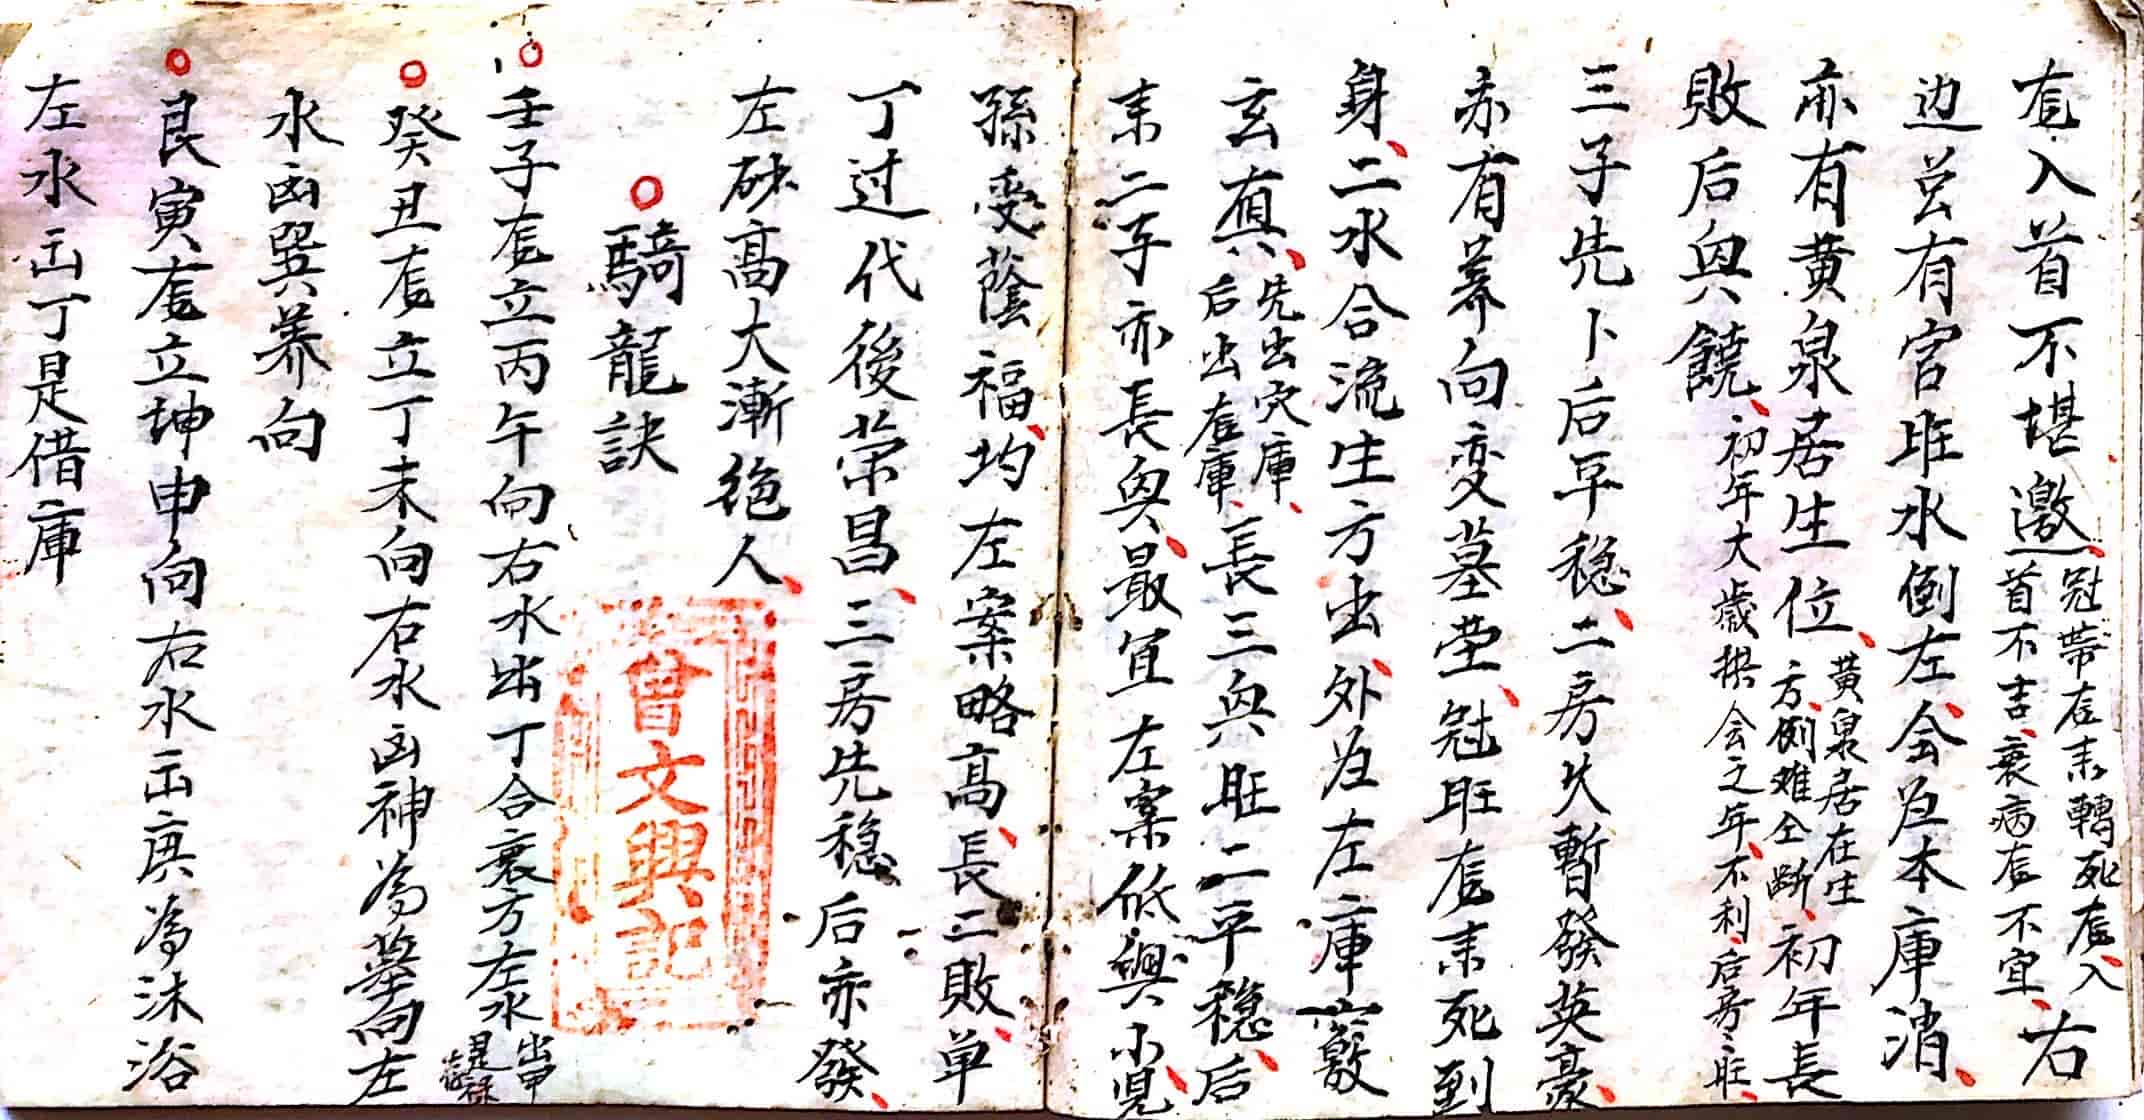 入首不堪邀冠帶左来轉死入首不吉衰病不宜右
边並有宮旺水倒左会为本庫消
亦有黄泉居生位黄泉居在生方倒难全断初年長
敗后與饒初年大歲拱会之年不利后房々旺
三子先卜后平穏二房欠暫發英豪
赤有养向变墓茔冠旺来死到
身二水合流生方出外为左庫
玄真先出穴庫后出庫長三與旺二平穏后
来二子亦長與最宜左案低興小児
孫受蔭福均左案略高長二敗单
丁过代後荣昌三房先穏后亦發
左砂高大漸絶人
騎龍訣
曾文興記
壬子立丙午向右水出丁合衰方左水出甲是禄
癸丑立丁未向右水凶神為墓向左
水凶巽养向
艮寅立坤申向右水缶庚為沐浴
左水缶丁是借庫